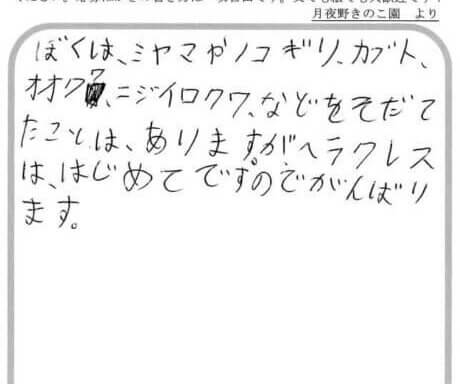 月夜野きのこ園 より
ぼくは、ミヤマやノコギリ、カブト、
オオクワ、ニジイロクワ、などをそだて
たことは、ありますがヘラクレス
は、はじめてですのでがんばり
ます。